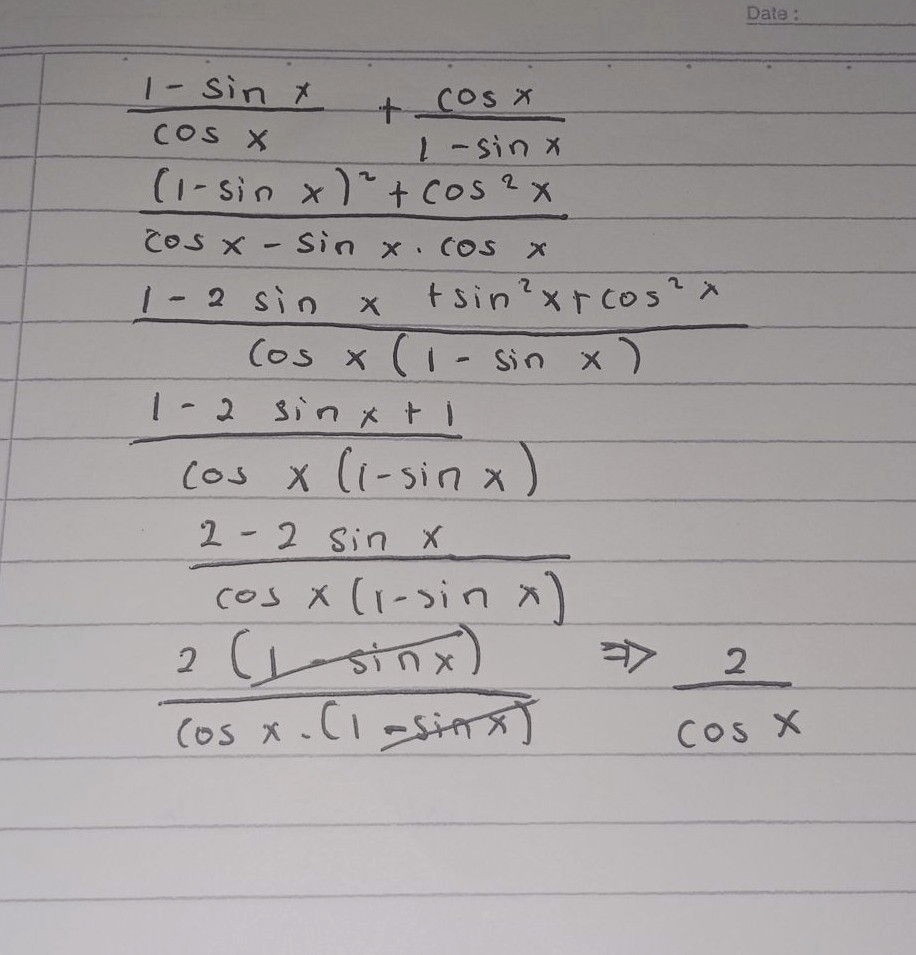 Date :
1 - sin x / cos x + cos x / 1 - sin x
(1 - sin x)² + cos² x / cos x - sin x . cos x
1 - 2 sin x + sin² x + cos² x / cos x (1 - sin x)
1 - 2 sin x + 1 / cos x (1 - sin x)
2 - 2 sin x / cos x (1 - sin x)
2 (1 - sin x) / cos x . (1 - sin x) ⇒ 2 / cos x